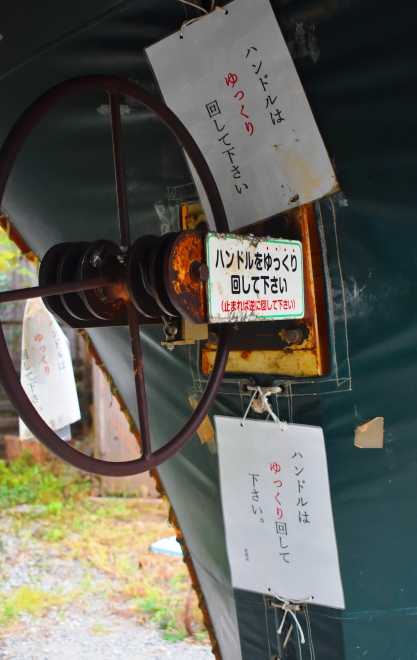 ハンドルは
ゆっくり
回して下さい
ハンドルをゆっくり
回して下さい
(止まれば逆に回して下さい)
ハンドルは
ゆっくり
ハンドルは
ゆっくり回して
下さい。